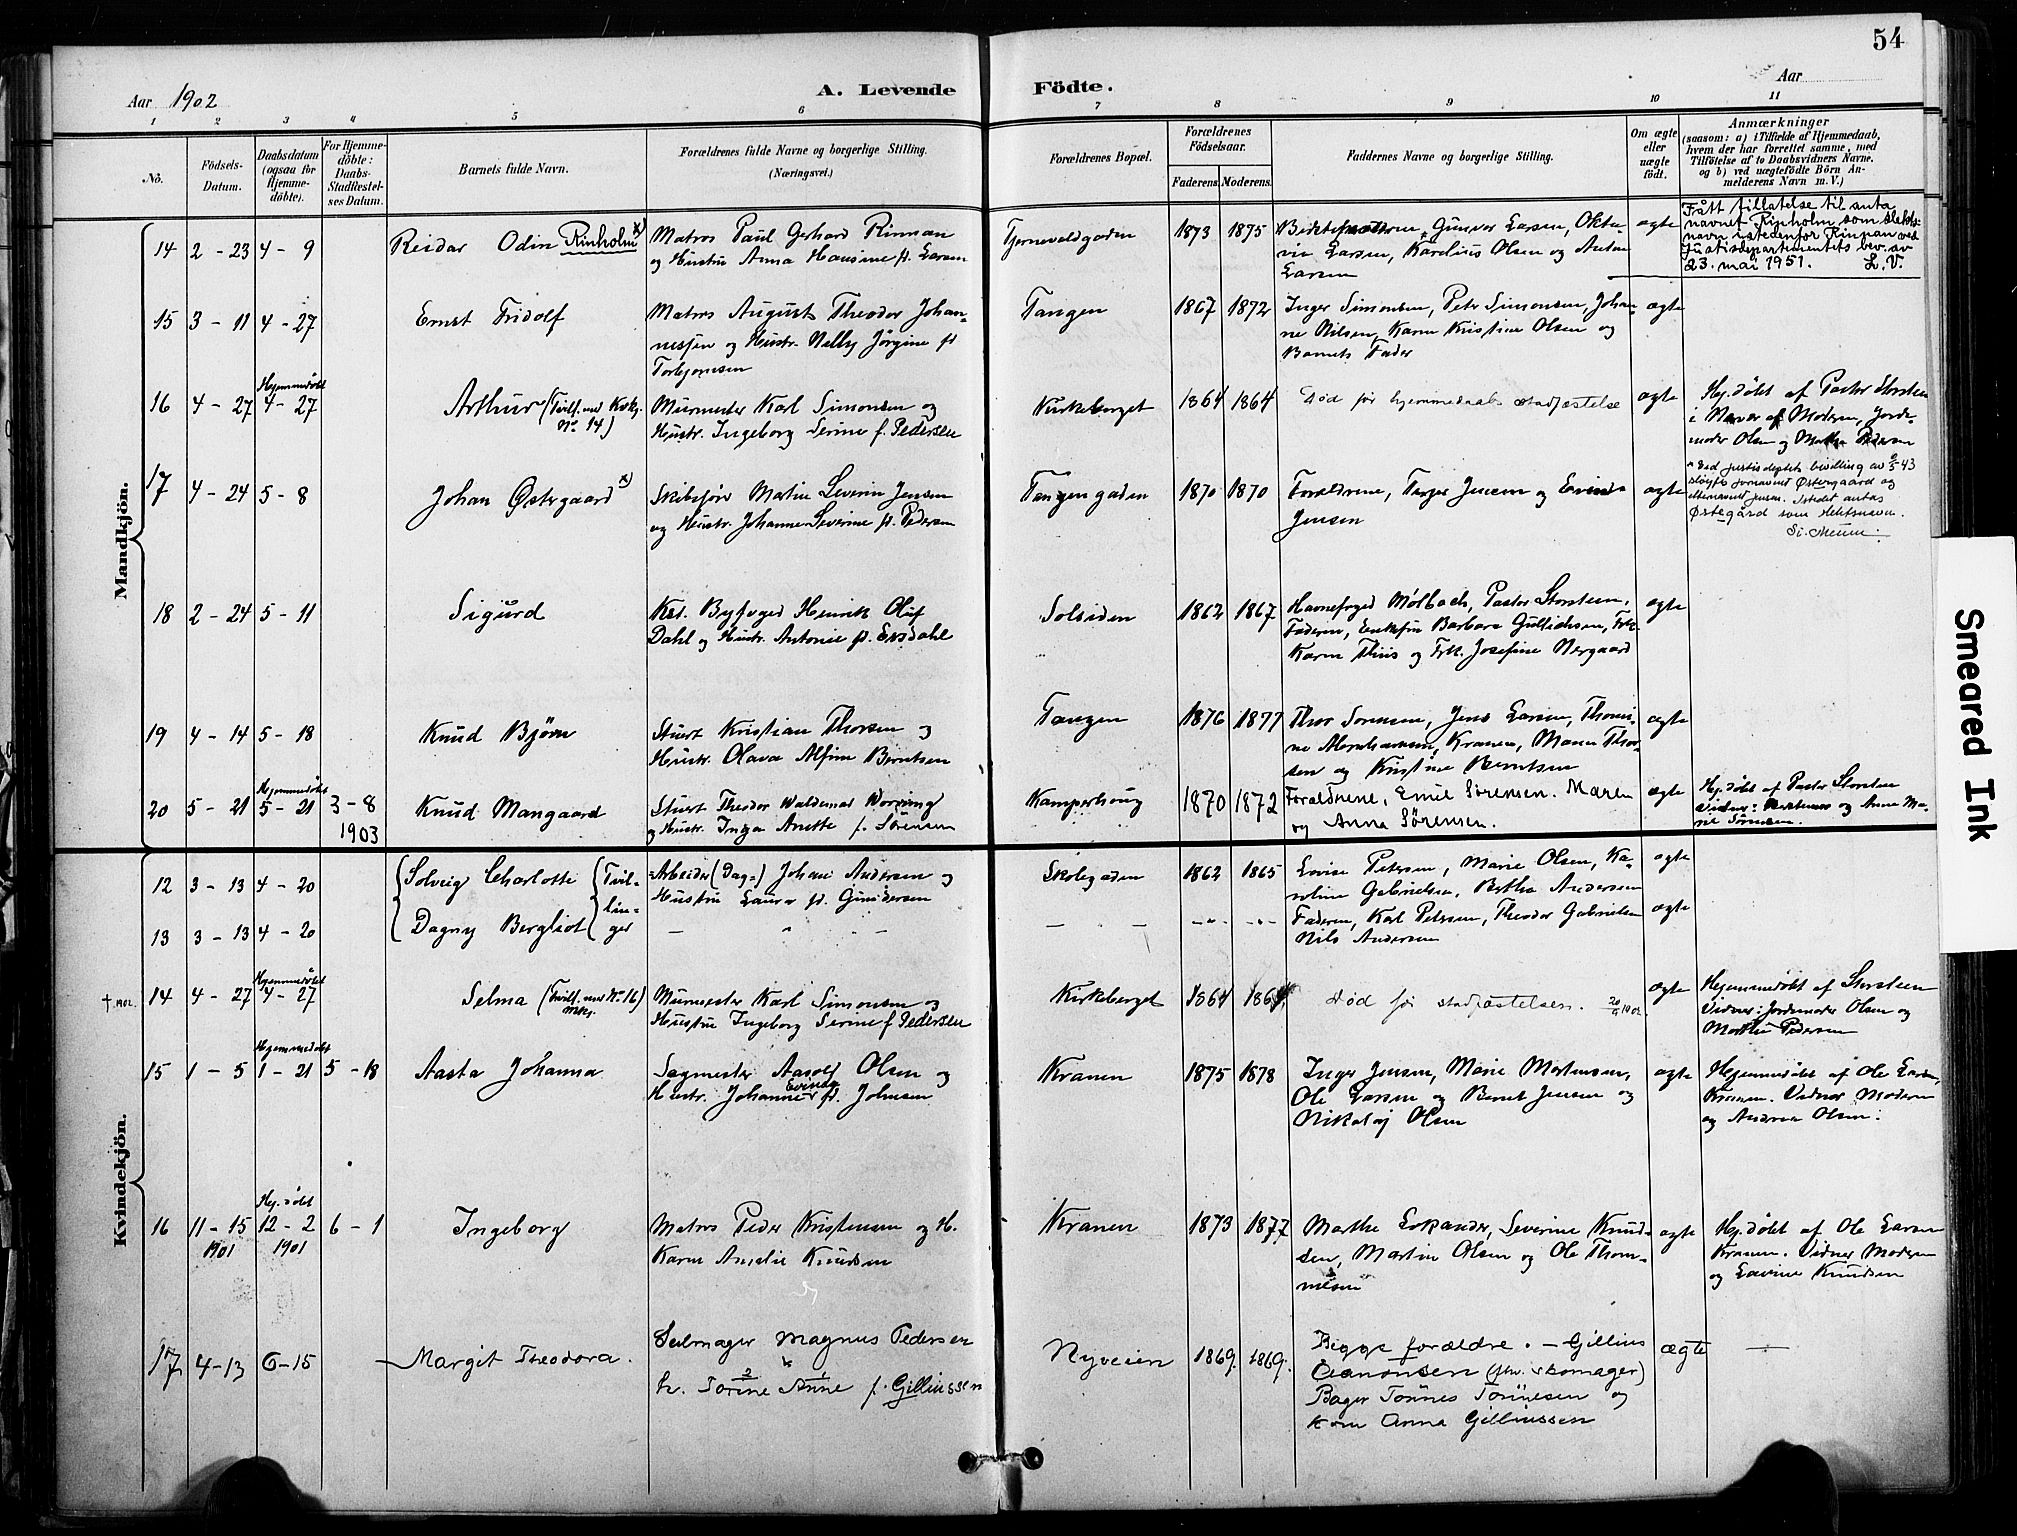 54
Aar 1902
A. Levende
Födte.
Aar
1 2 3 4 5 6 7 8 9 10 11
No.
Födsels-
Datum.
Daabsdatum
(ogsaa for
Hjemme-
döbte).
For Hjemme-
döbte:
Daabs-
Stadfæstel-
ses Datum.
Barnets fulde Navn.
Forældrenes fulde Navne og borgerlige Stilling.
(Næringsvei.)
Forældrenes Bopæl.
Forældrenes
Födselsaar.
Faderens. Moderens.
Faddernes Navne og borgerlige Stilling.
Om ægte
eller
uægte
födt.
Anmærkninger
(saasom: a) i Tilfælde af Hjemmedaab,
hvem der har forrettet samme, med
Tilföielse af to Daabsvidners Navne,
og b) ved uægtefödte Börn An-
melderens Navn m. V.)
Mandkjön.
14 2 - 23 4 - 9
Reidar Odin Rinholm x)
Matros Paul Gerhard Rinnan
og Hustru Anna Hansine f. Larsen
Tjernevoldgaden
1873 1875
Gunvor Larsen, Okta-
via Larsen, Karelius Olsen og Anton
Larsen
ægte
Fått tillatelse til anta
navnet Rinholm som slekts-
navn istedenfor Rinnan ved
Justisdepartementets bev. av
23. mai 1951. L.V.
15 3 - 11 4 - 27
Ernst Fridolf
Matros August Theodor Johan-
nessen og Hustr. Nelly Jörgine f.
Torbjørnsen
Tangen
1867 1872
Inger Simonsen, Peter Simonsen, Johan-
ne Nilsen, Karen Kristine Olsen og
Barnets Fader
ægte
16 4 - 27 Hjemmedøbt 4 - 27
Arthur (Tvill. med Kvkj.
No 14)
Murmester Karl Simonsen og
Hustr. Ingeborg Serine f. Pedersen
Kirkeberget
1864 1864
Død før hjemmedaabs stadfæstelse
ægte
Hj.døbt af Pastor Storsteen
i Nærvær af Moderen, Jorde-
moder Olsen og Marthe Pedersen
17 4 - 24 5 - 8
Johan Østergaard x)
Skibsfører Martin Severin Jensen
og Hustr. Johanne Severine f. Pedersen
Tangengaden
1870 1870
Forældrene, Terjer Jensen og Evinda
Jensen
ægte
x Ved justisdeptets bevilling av 43
sløyfes fornavnet Østergaard og
etternavnet Jensen. Istedet antas
Østegård som slektsnavn.
18 2 - 24 5 - 11
Sigurd
Kst. Byfoged Henrik Oluf
Dahl og Hustr. Antonie f. Ersdahl
Solsiden
1862 1867
Havnefoged Mølbach, Pastor Storsteen,
Faderen, Enkefru Barbara Gullichsen, Frk.
Karen Thiis og Frk. Josefine Nergaard
ægte
19 4 - 14 5 - 18
Knud Bjørn
Stuert Kristian Thorsen og
Hustr. Olava Alfine Berntsen
Tangen
1876 1877
Thor Sorensen, Jens Larsen, Thomi-
ne Abrahamsen, Kranen, Maren Thor-
sen og Kristine Berntsen
ægte
20 5 - 21 Hjemmedøbt 5 - 21 3 - 8
1903
Knud Mangaard
Stuert Theodor Valdemar Worning
og Hustr. Inga Anette f. Sørensen
Kamperhoug
1870 1872
Forældrene, Emil Sørensen. Maren
og Anna Sørensen.
ægte
Hj.døbt af Pastor Storsteen
Vidner: og Anne Ma-
rie Sørensen.
Kvindekjön.
12 3 - 13 4 - 20
Solveig Charlotte Tvil-
Arbeider (Dag-) Johan Andersen og
Hustru Laura f. Gundersen
Skolegaden
1862 1865
Lovise Petersen, Marie Olsen, Ka-
roline Gabrielsen, Bertha Andersen
ægte
lin-
13 3 - 13 4 - 20
Dagny Bergliot ger
— " —
— —
-"- -"-
Faderen, Karl Petersen, Theodor Gabrielsen
Nils Andersen
ægte
† 1902. 14 4 - 27 Hjemmedøbt 4 - 27
Selma (Tvill. med No 16)
mkj.
Murmester Karl Simonsen og
Hustru Ingeborg Serine f. Pedersen
Kirkeberget
1864 1864
Død før stadfæstelsen. 20/9 1902
ægte
Hjemmedøbt af Storsteen
Vidner: Jordemoder Olsen og
Marthe Pedersen
15 1 - 5 Hjemmedøbt 1 - 21 5 - 18
Aasta Johanna
Sagmester Aasold Olsen og
Hustr. Johanne Evinda f. Johnsen
Kranen
1875 1878
Inger Jensen, Marie Mortensen,
Ole Larsen og Bernt Jensen og
Nikolaj Olsen
ægte
Hjemmedøbt af Ole Larsen,
Kranen. Vidner Moderen
og Andrea Olsen.
16 11 - 15 1901 Hj. døbt 12 - 2 1901 6 - 1
Ingeborg
Matros Peder Kristensen og H.
Karen Amalie Knudsen
Kranen
1873 1877
Marthe Eskander, Severine Knud-
sen, Martin Olsen og Ole Thom-
mesen
ægte
Hj.døbt af Ole Larsen
Kranen. Vidner Moderen
og Lavine Knudsen
17 4 - 13 6 - 15
Margit Theodora.
Seilmager Magnus Pedersen
h. Torine Anne f. Gilliussen
Nyveien
1869. 1869.
Begge forældre. — Gillius
Aanonsen (fhv. skomager)
Bager Tönnes Tönnesen og
kone Anna Gilliussen
ægte
—
Smeared Ink